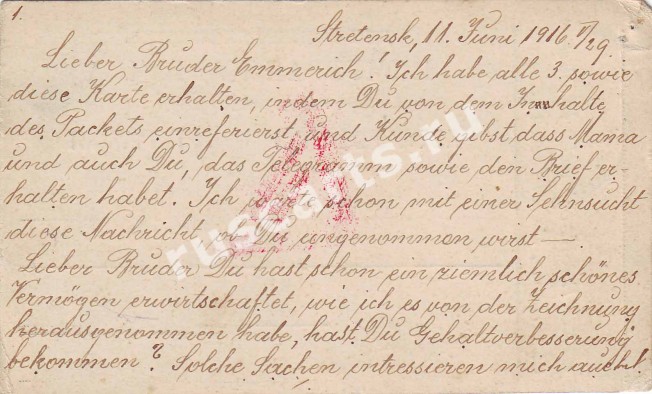 1.
Stretensk, 11. Juni 1916 /29.
Lieber Bruder Emmerich! Ich habe alle 3. sowie
diese Karte erhalten, indem Du von dem Innhalte
des Packets einreferierst, und Kunde gibst dass Mama
und auch Du, das Telegramm sowie den Brief er-
halten habet. Ich warte schon mit einer Sehnsucht
diese Nachricht Du ungenommen wirst —
Lieber Bruder Du hast schon ein ziemlich schönes
Vermögen erwirtschaftet, wie ich es von der Zeichnung
herausgenommen habe, hast Du Gehaltverbesserung
bekommen? Solche Sachen intressieren mich auch!
russiants.ru